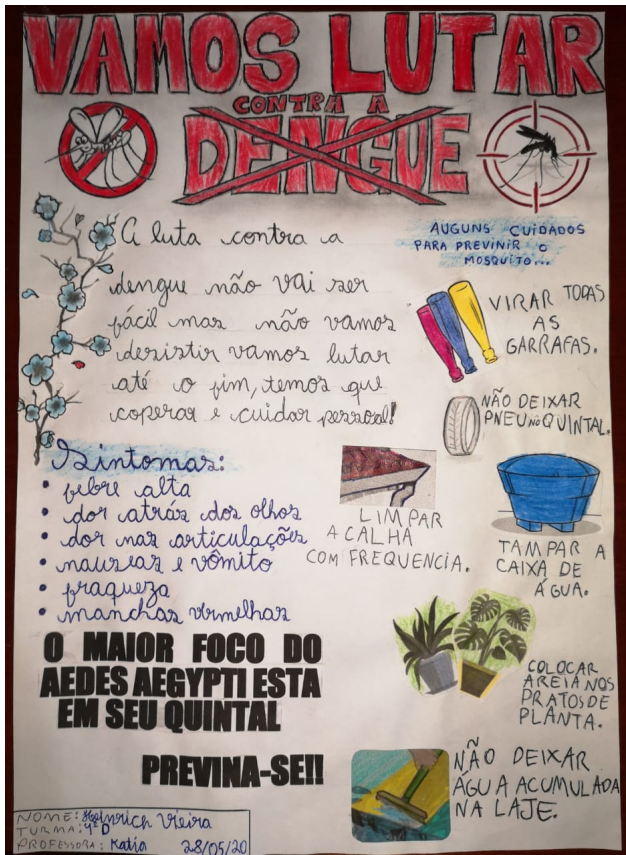 VAMOS LUTAR
CONTRA A
DENGUE
A luta contra a
dengue não vai ser
fácil mas não vamos
desistir vamos lutar
até o fim, temos que
coperar e cuidar pessoal!
Sintomas:
• febre alta
• dor atrás dos olhos
• dor nas articulações
• nauseas e vômito
• fraqueza
• manchas vermelhas
O MAIOR FOCO DO
AEDES AEGYPTI ESTA
EM SEU QUINTAL
PREVINA-SE!!
AUGUNS CUIDADOS
PARA PREVINIR O
MOSQUITO...
VIRAR TODAS
AS
GARRAFAS.
NÃO DEIXAR
PNEU NO QUINTAL.
LIMPAR
A CALHA
COM FREQUENCIA.
TAMPAR A
CAIXA DE
ÁGUA.
COLOCAR
AREIA NOS
PRATOS DE
PLANTA.
NÃO DEIXAR
ÁGUA ACUMULADA
NA LAJE.
NOME: Heinrich Vieira
TURMA: 4º D
PROFESSORA: Katia 28/05/20